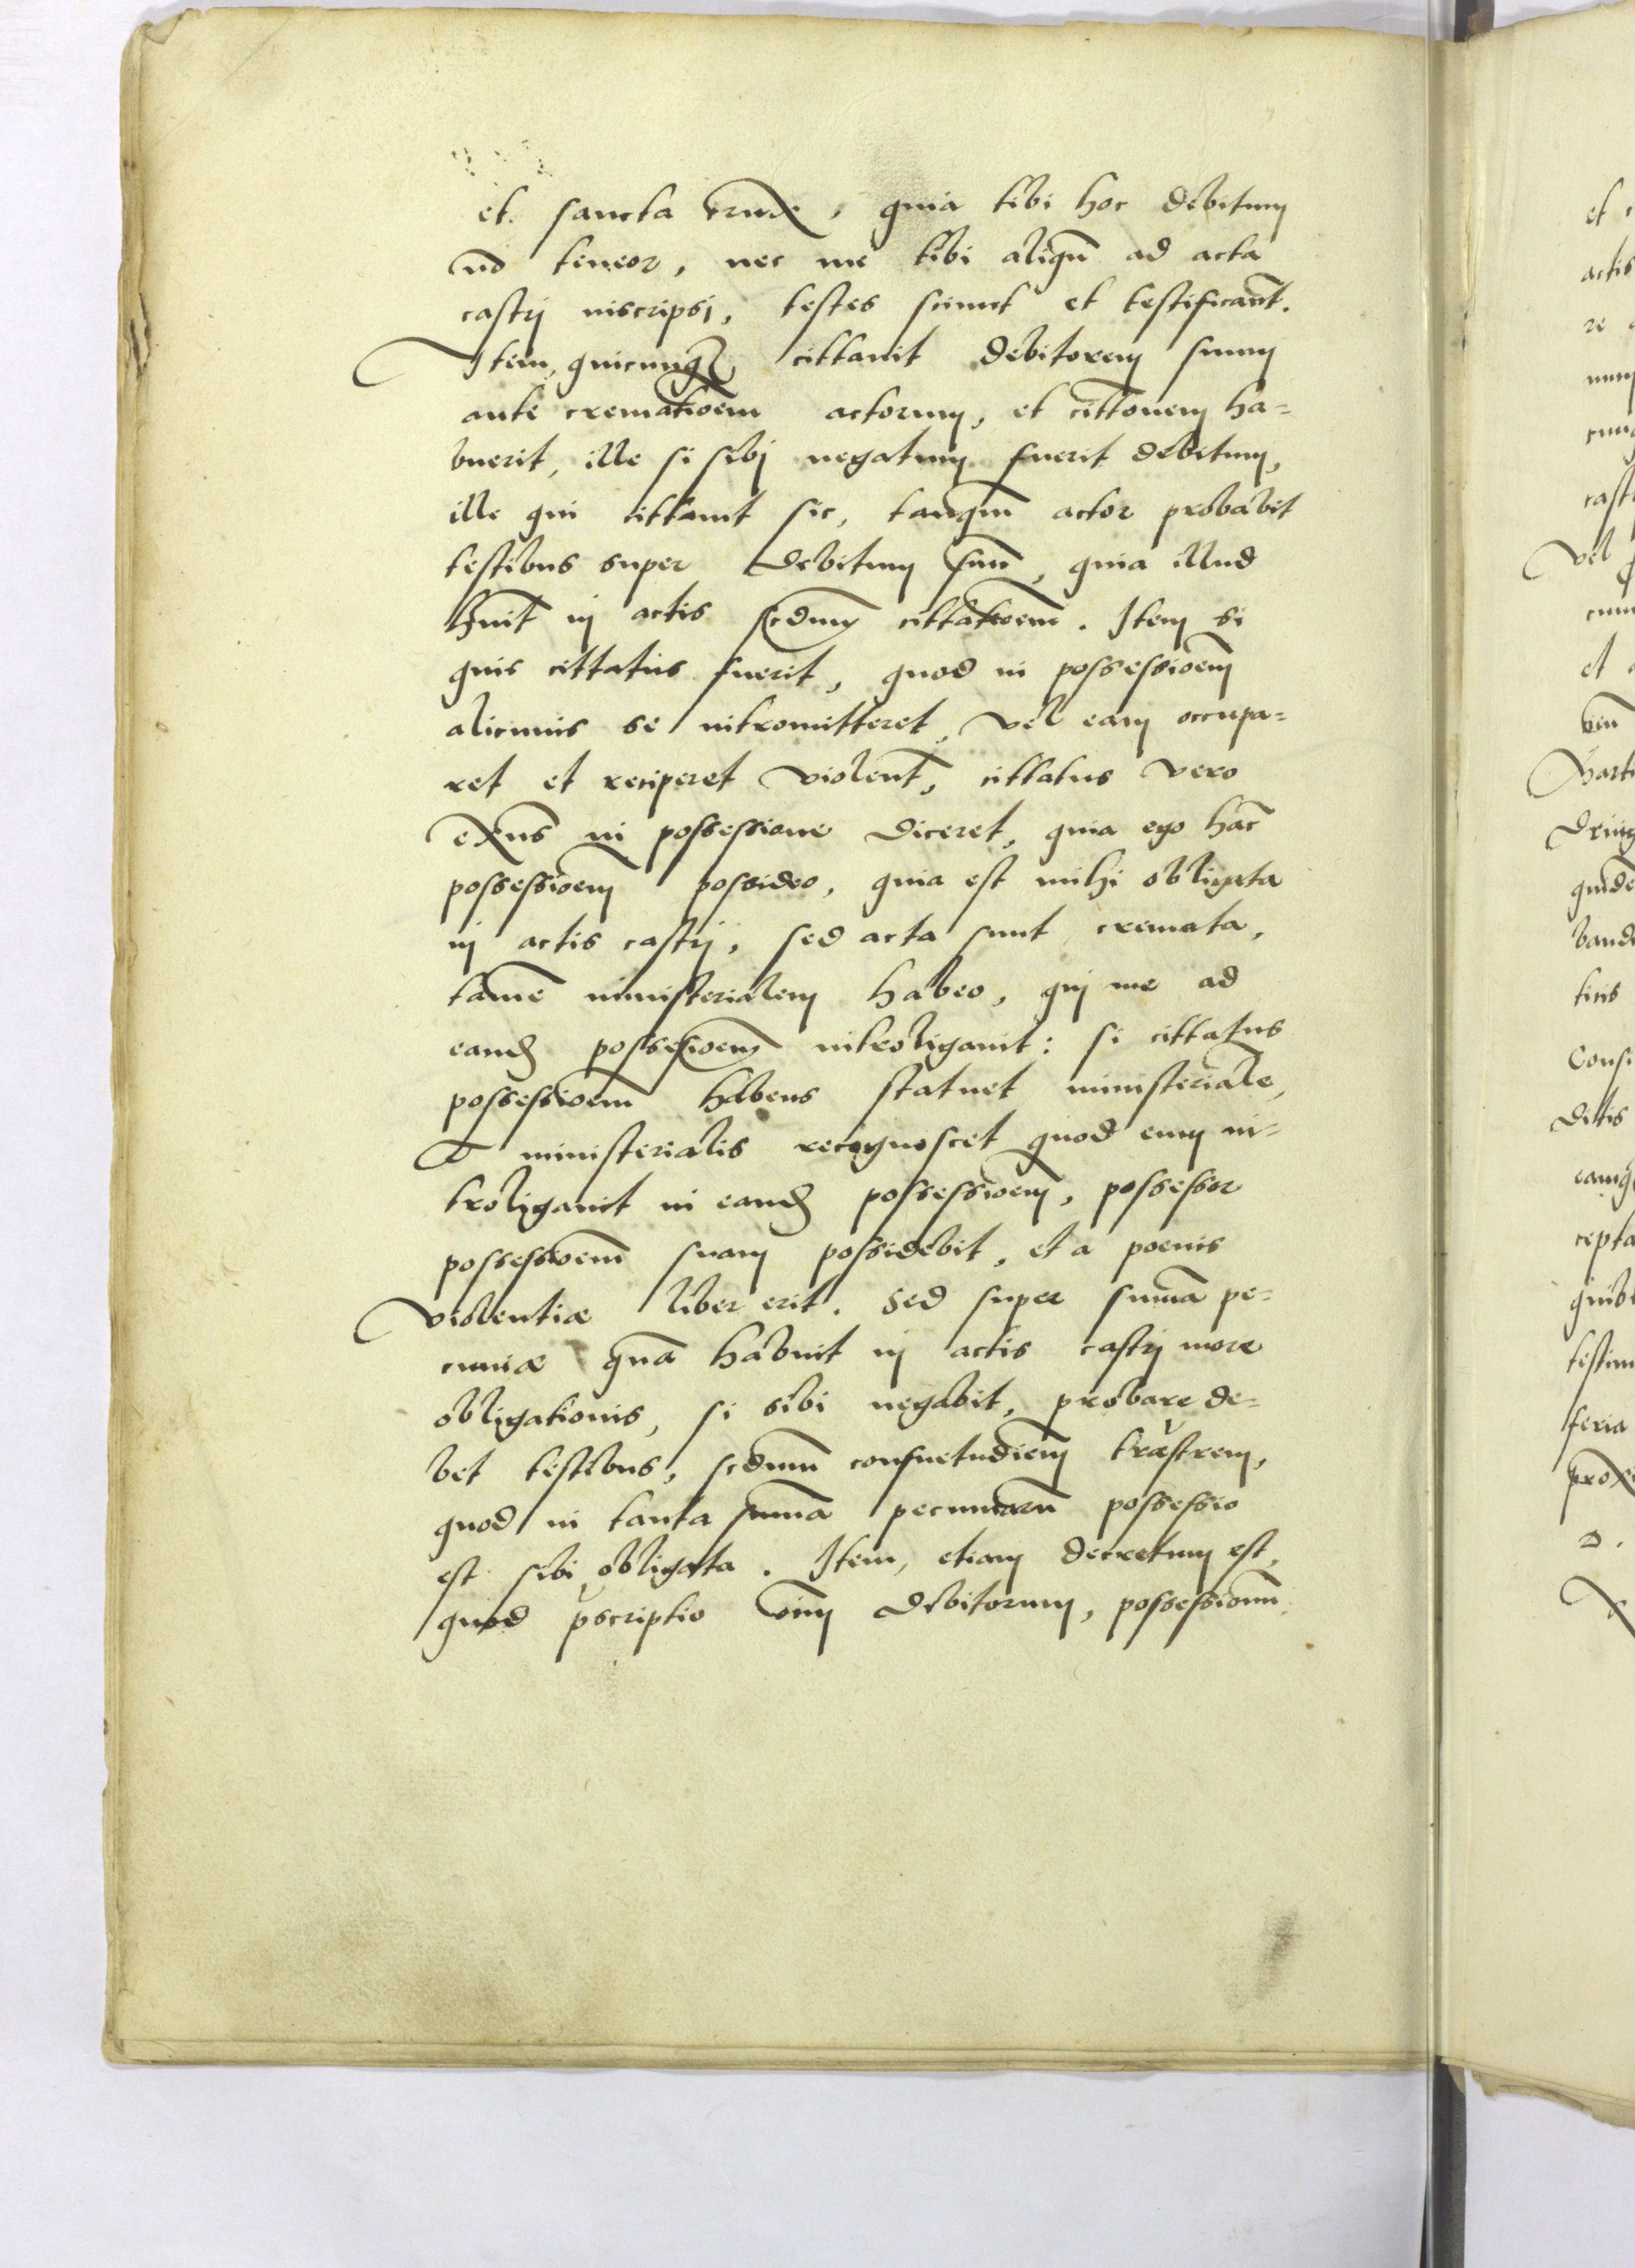 et sancta crux, quia tibi hoc debitum
nō teneor, nec me tibi aliqñ ad acta
castrj inscripsj, testes sciunt et testificant̄.
Item, quicunq; cittavit debitorem suum
ante crematioēm actorum, et cittōnem ha=
buerit, ille si sibj negatum fuerit debitum,
ille qui cittavit sic, tanqm̄ actor probabit
testibus super debitum suū, quia illud
hūit in actis scdum cittatioēm. Item si
quis cittatus fuerit, quod in possessioēm
alicuius se intromitteret, vel eam occupa=
ret et reciperet violent̄, cittatus vero
exn̄s in possessione diceret, quia ego hāc
possessioēm possideo, quia est mihi obligata
in actis castrj, sed acta sunt cremata,
tamē ministerialem habeo, qui me ad
eand possessioēm introligavit: si cittatus
possessioēm habens statuet ministeriale,
& ministerialis recognoscet quod eum in=
troligavit in eand possessioēm, possessor
possessioēm suam possidebit, et a poenis
violentiæ liber erit. Sed super summā pe=
cuniæ quā habuit in actis castrj more
obligationis, si sibi negabit, probare de=
bet testibus, scdum̄ consuetudiēm trāstrem,
quod in tanta summā pecuniarū possessio
est sibi obligata. Item, etiam decretum est,
quod pscriptio oīm debitorum, possessionū
et
actis
re
cast
vel
cum
et
quide
band
Consi
ditis
cepta
quib
testim
feria